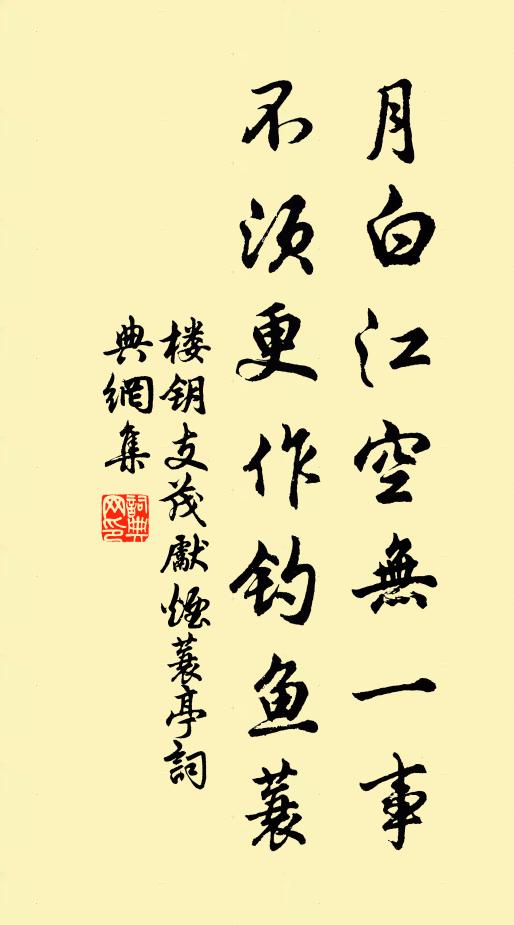 月白江空無一事
不须更作钓鱼蓑
楼钥支茂獻煙蓑亭詞
典網集
詞典网印